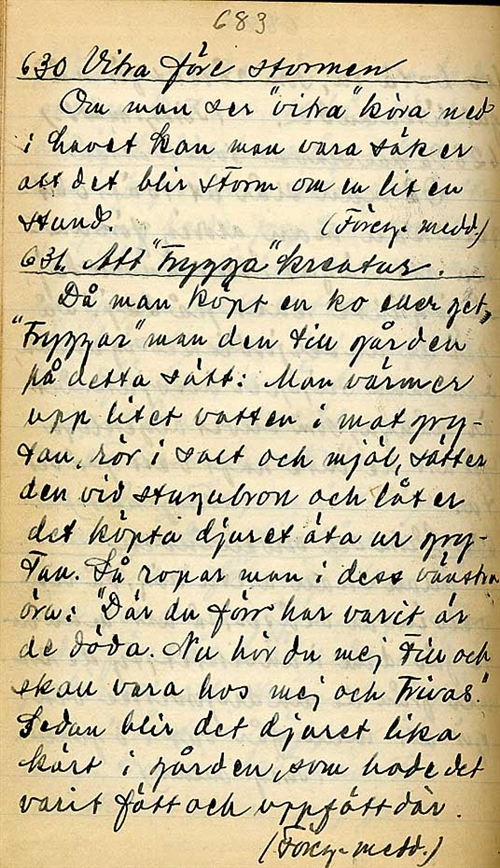 683
630 Vitra före stormen
Om man ser "vitra" köra ned
i havet kan man vara säker
att det blir storm om en liten
stund. (Föreg. medd.)
631. Att "Trygga" kreatur.
Då man köpt en ko eller get,
"Tryggar" man den till gården
på detta sätt: Man värmer
upp litet vatten i matgry-
tan, rör i salt och mjöl, sätter
den vid stugubron och låter
det köpta djuret äta ur gry-
tan. Så ropar man i dess vänstra
öra: "Där du förr har varit är
de döda. Nu hör du mej till och
skall vara hos mej och trivas."
Sedan blir det djuret lika
kärt i gården, som hade det
varit fött och uppfött där.
(Föreg. medd.)